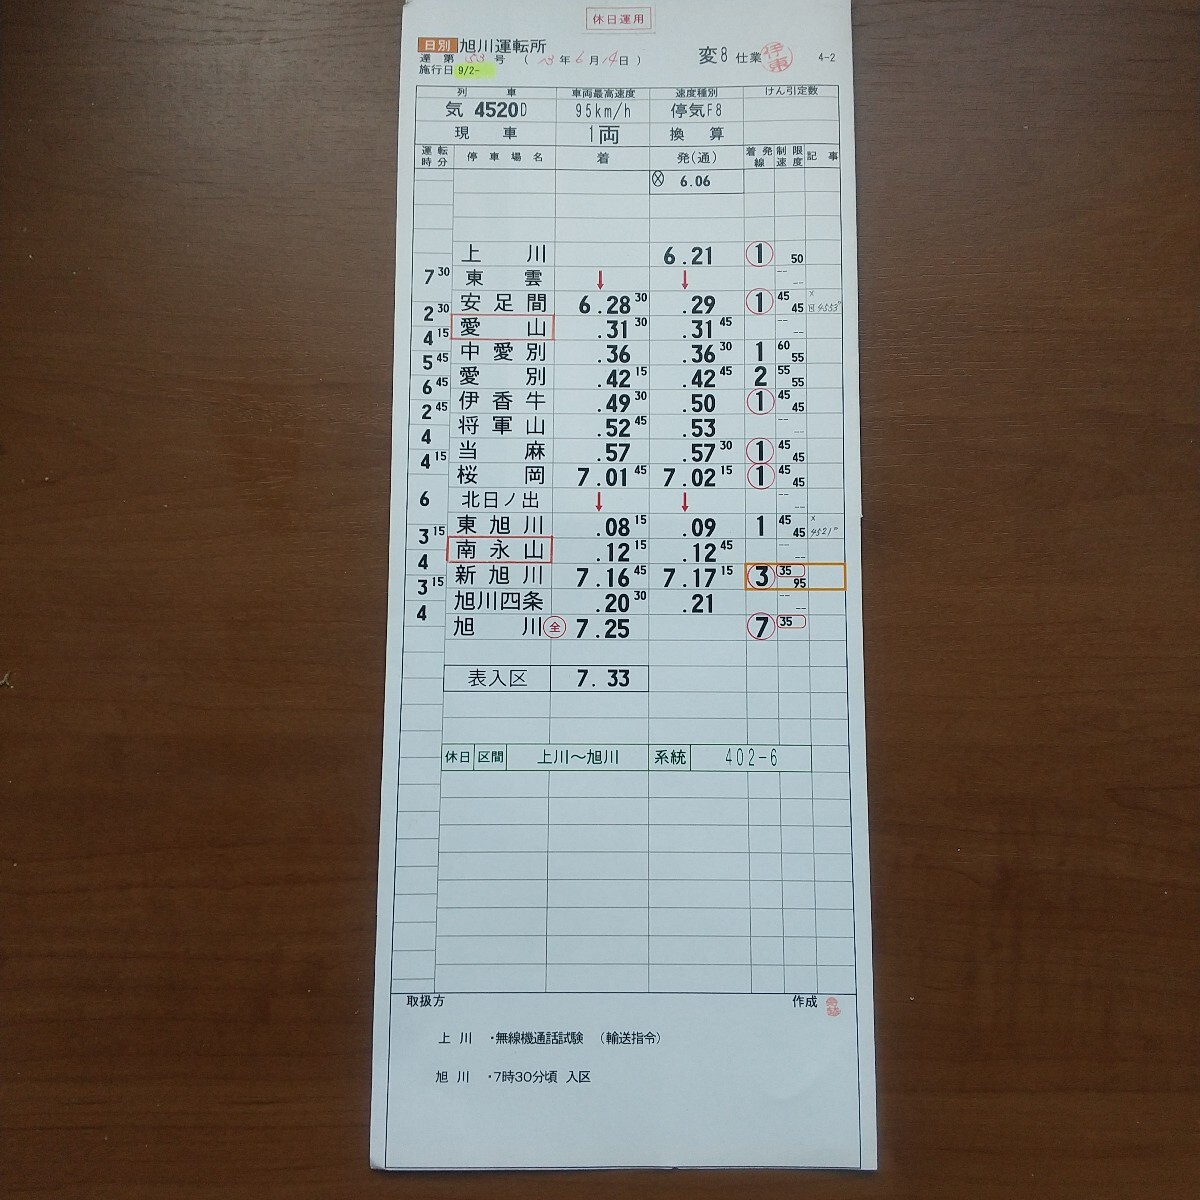 休日運用
日別 旭川運転所
達 第 号 ( 年 6 月 14 日 ) 変8 仕業 伊東 4-2
施行日 9/2-
列 車 車両最高速度 速度種別 けん引定数
気 4520D 95km/h 停気F8
現 車 1両 換 算
運転時分 停車場名 着 発(通) 着発線 制限速度 記事
6.06
上 川 6.21 1 50
7 30 東 雲 ↓ ↓ -- --
安足間 6.28 30 .29 1 45 45 × 回4553D
2 30 愛 山 .31 30 .31 45 -- --
4 15 中愛別 .36 .36 30 1 60 55
5 45 愛 別 .42 15 .42 45 2 55 55
6 45 伊香牛 .49 30 .50 1 45 45
2 45 将軍山 .52 45 .53 -- --
4 当 麻 .57 .57 30 1 45 45
4 15 桜 岡 7.01 45 7.02 15 1 45 45
6 北日ノ出 ↓ ↓ -- --
東旭川 .08 15 .09 1 45 45 × 4521D
3 15 南永山 .12 15 .12 45 -- --
4 新旭川 7.16 45 7.17 15 3 35 95
3 15 旭川四条 .20 30 .21 -- --
4 旭 川 全 7.25 7 35
表入区 7.33
休日 区間 上川〜旭川 系統 402-6
取扱方 作成
上 川 ・無線機通話試験 (輸送指令)
旭 川 ・7時30分頃 入区